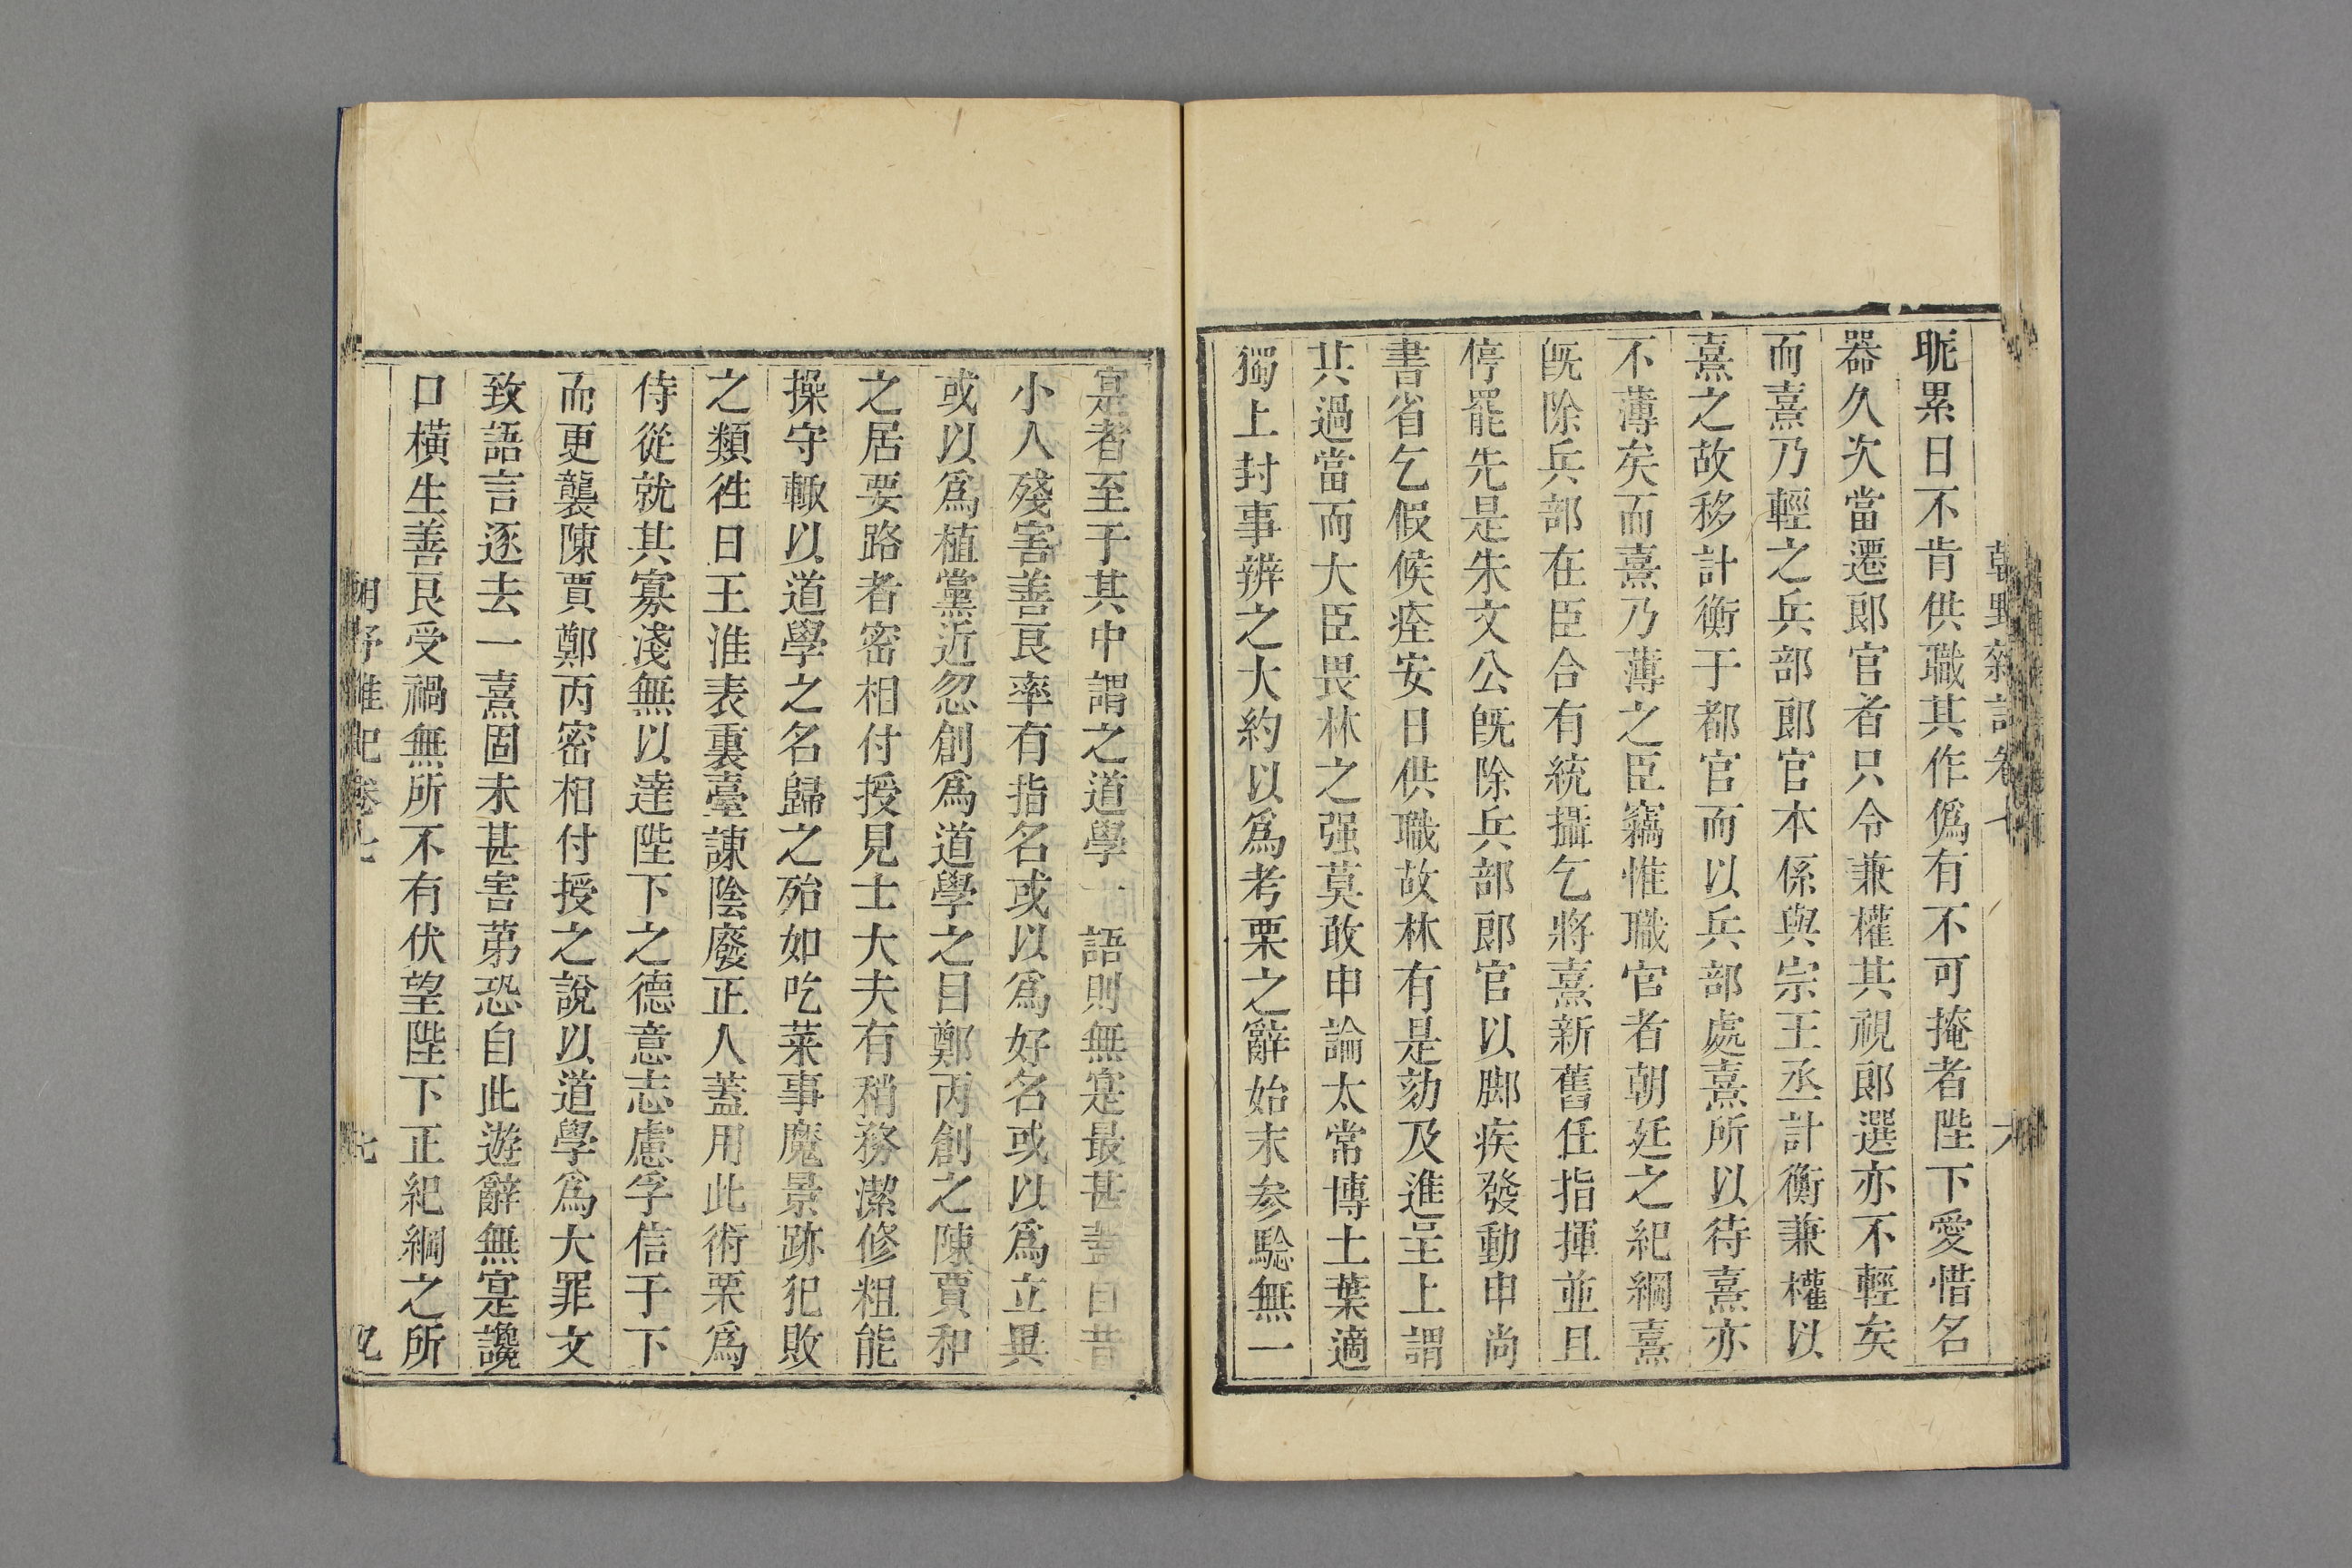 朝野雜記卷七
眤累日不肯供職其作僞有不可掩者陛下愛惜名
器久次當遷郎官者只令兼權其視郎選亦不輕矣
而熹乃輕之兵部郎官本係與宗王丞計衡兼權以
熹之故移計衡于都官而以兵部處熹所以待熹亦
不薄矣而熹乃薄之臣竊惟職官者朝廷之紀綱熹
旣除兵部在臣合有統攝乞將熹新舊任指揮並且
停罷先是朱文公旣除兵部郎官以脚疾發動申尚
書省乞假候痊安日供職故林有是劾及進呈上謂
其過當而大臣畏林之强莫敢申論太常博士葉適
獨上封事辨之大約以爲考栗之辭始末參騐無一
寔者至于其中謂之道學一語則無寔最甚蓋自昔
小人殘害善良率有指名或以爲好名或以爲立異
或以爲植黨近忽創爲道學之目鄭丙創之陳賈和
之居要路者密相付授見士大夫有稍務潔修粗能
操守輙以道學之名歸之殆如吃菜事魔景跡犯敗
之類徃日王淮表裏臺諫陰廢正人蓋用此術栗爲
侍從就其寡淺無以達陛下之德意志慮孚信于下
而更襲陳賈鄭丙密相付授之說以道學爲大罪文
致語言逐去一熹固未甚害第恐自此遊辭無寔讒
口橫生善良受禍無所不有伏望陛下正紀綱之所